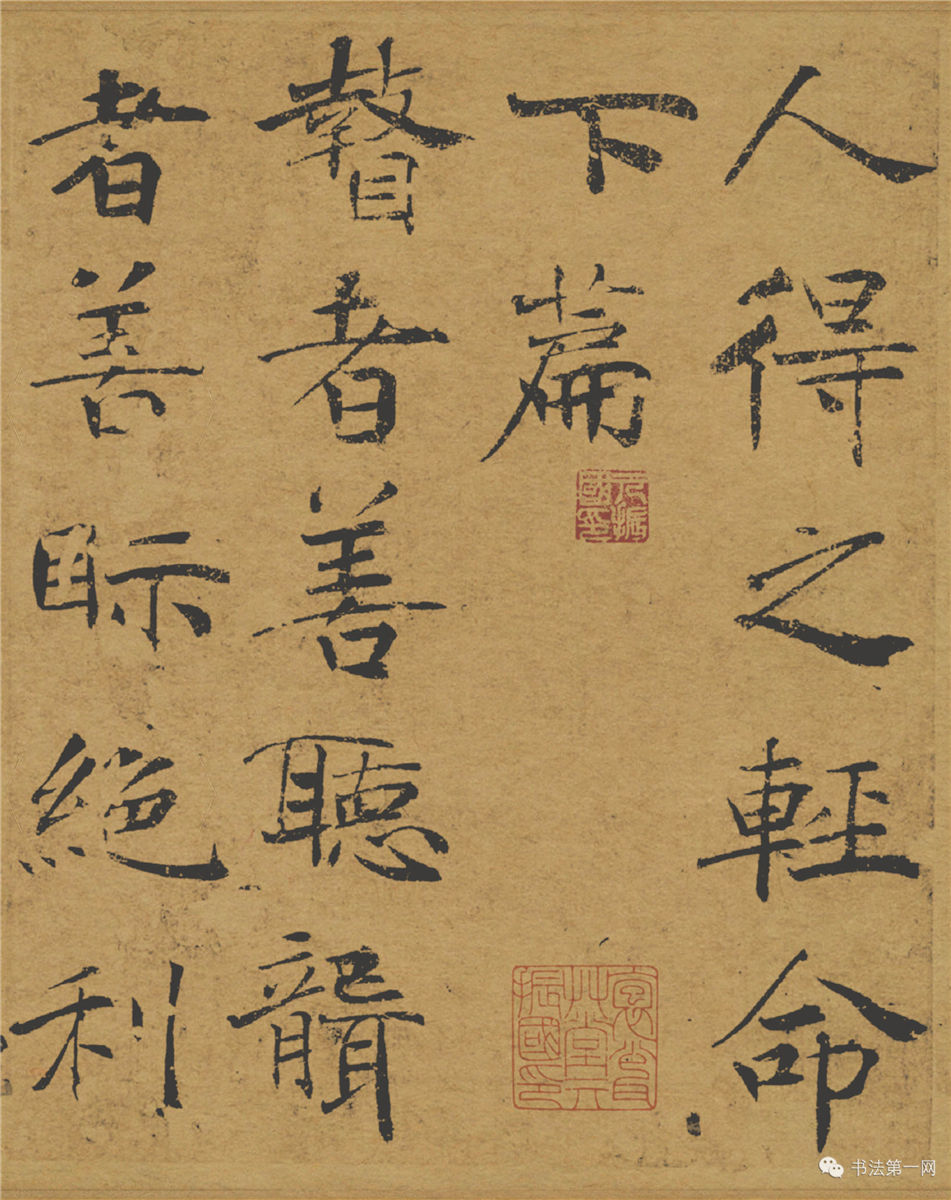 人得之輕命
下篇
瞽者善聽聾
者善眎絶利
书法第一网